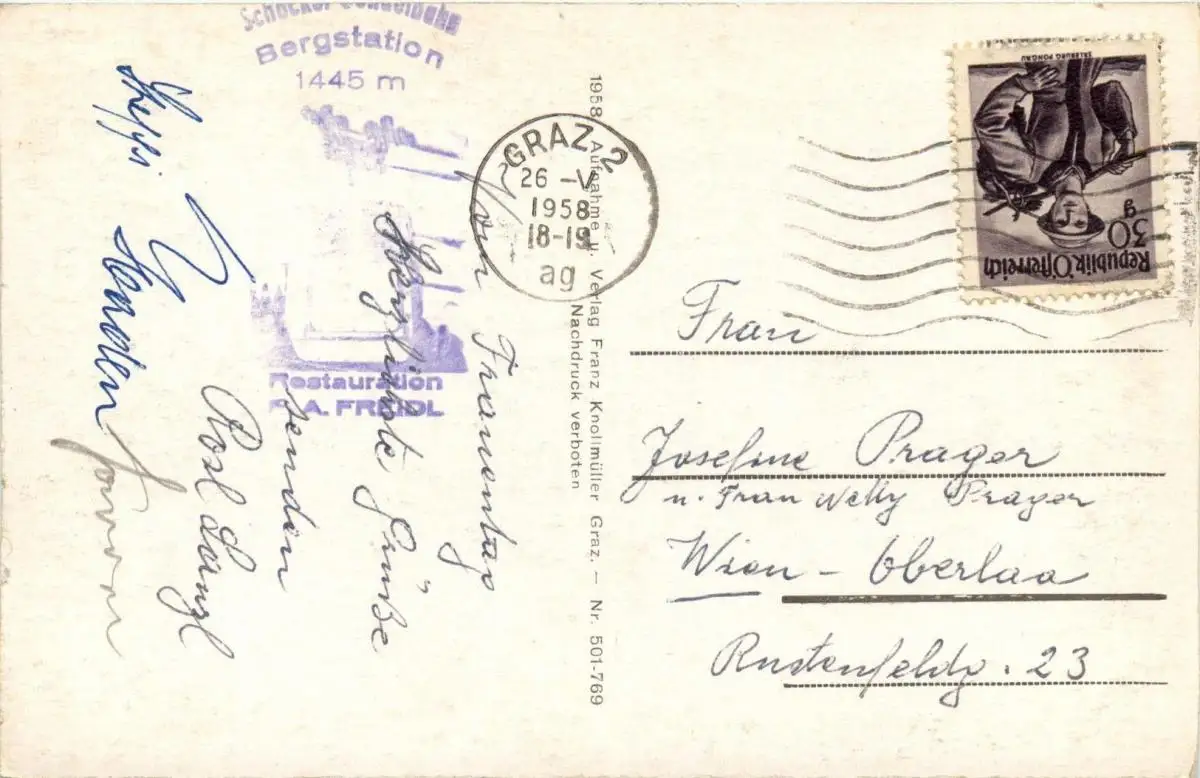 Schöckel Seilbahn
Bergstation
1445 m
Restauration
A. FREIDL
Vom Frauentag
Herzlichste Grüße
senden
Rosl
1958 Aufnahme u. Verlag Franz Knollmüller Graz. – Nr. 501-769
Nachdruck verboten
GRAZ 2
26 -V
1958
18-19
ag
SALZBURG PONGAU
30 g
Republik Österreich
Frau
Josefine Prager
u. Frau Nelly Prager
Wien - Oberlaa
Rustenfeldg. 23